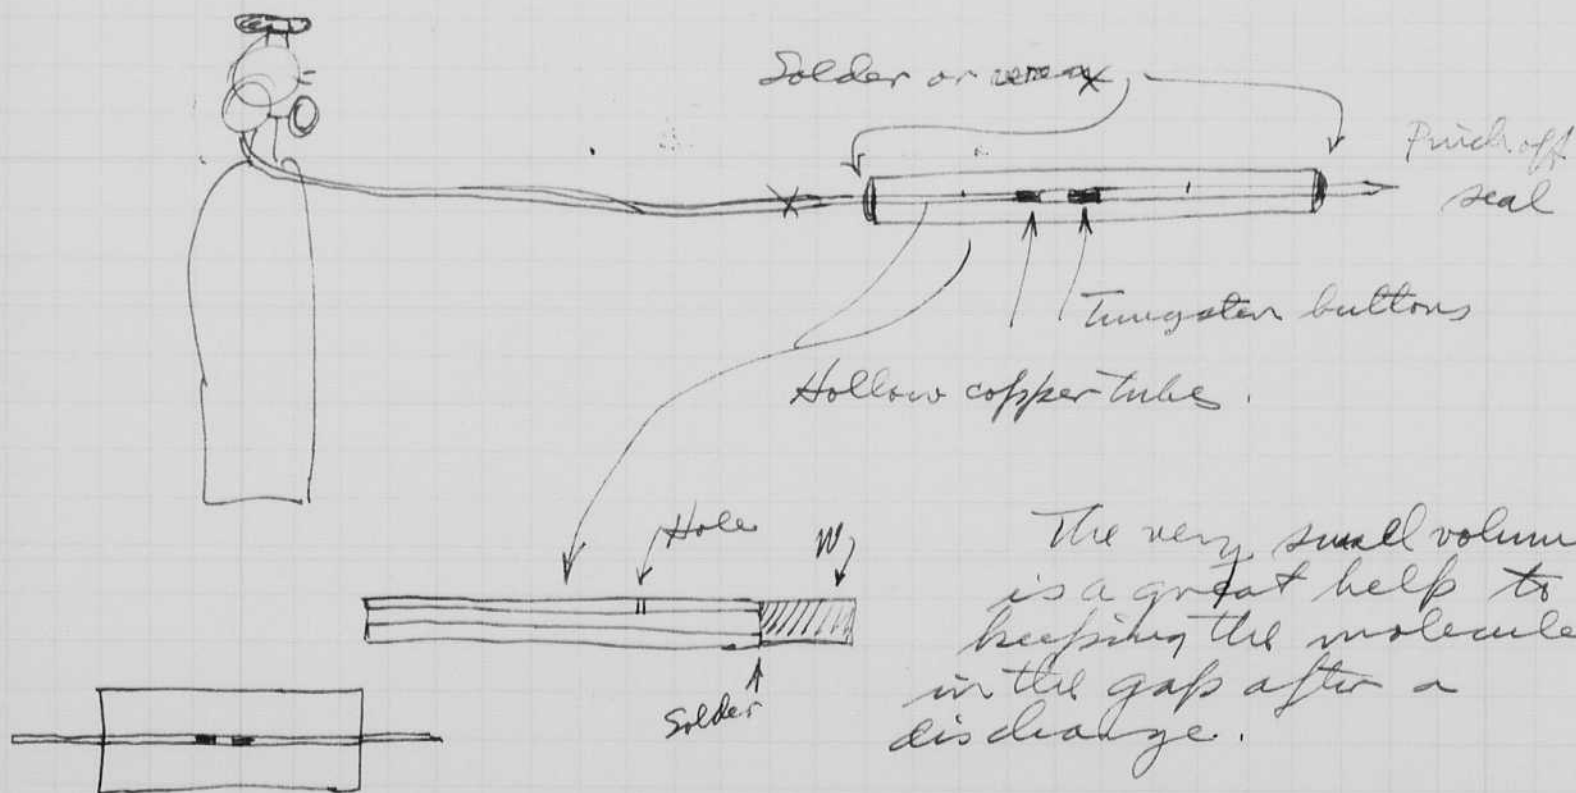 Solder or wax
Pinch off
seal
Tungsten buttons
Hollow copper tubes.
Hole
W
Solder
The very small volume
is a great help to
keeping the molecule
in the gap after a
discharge.